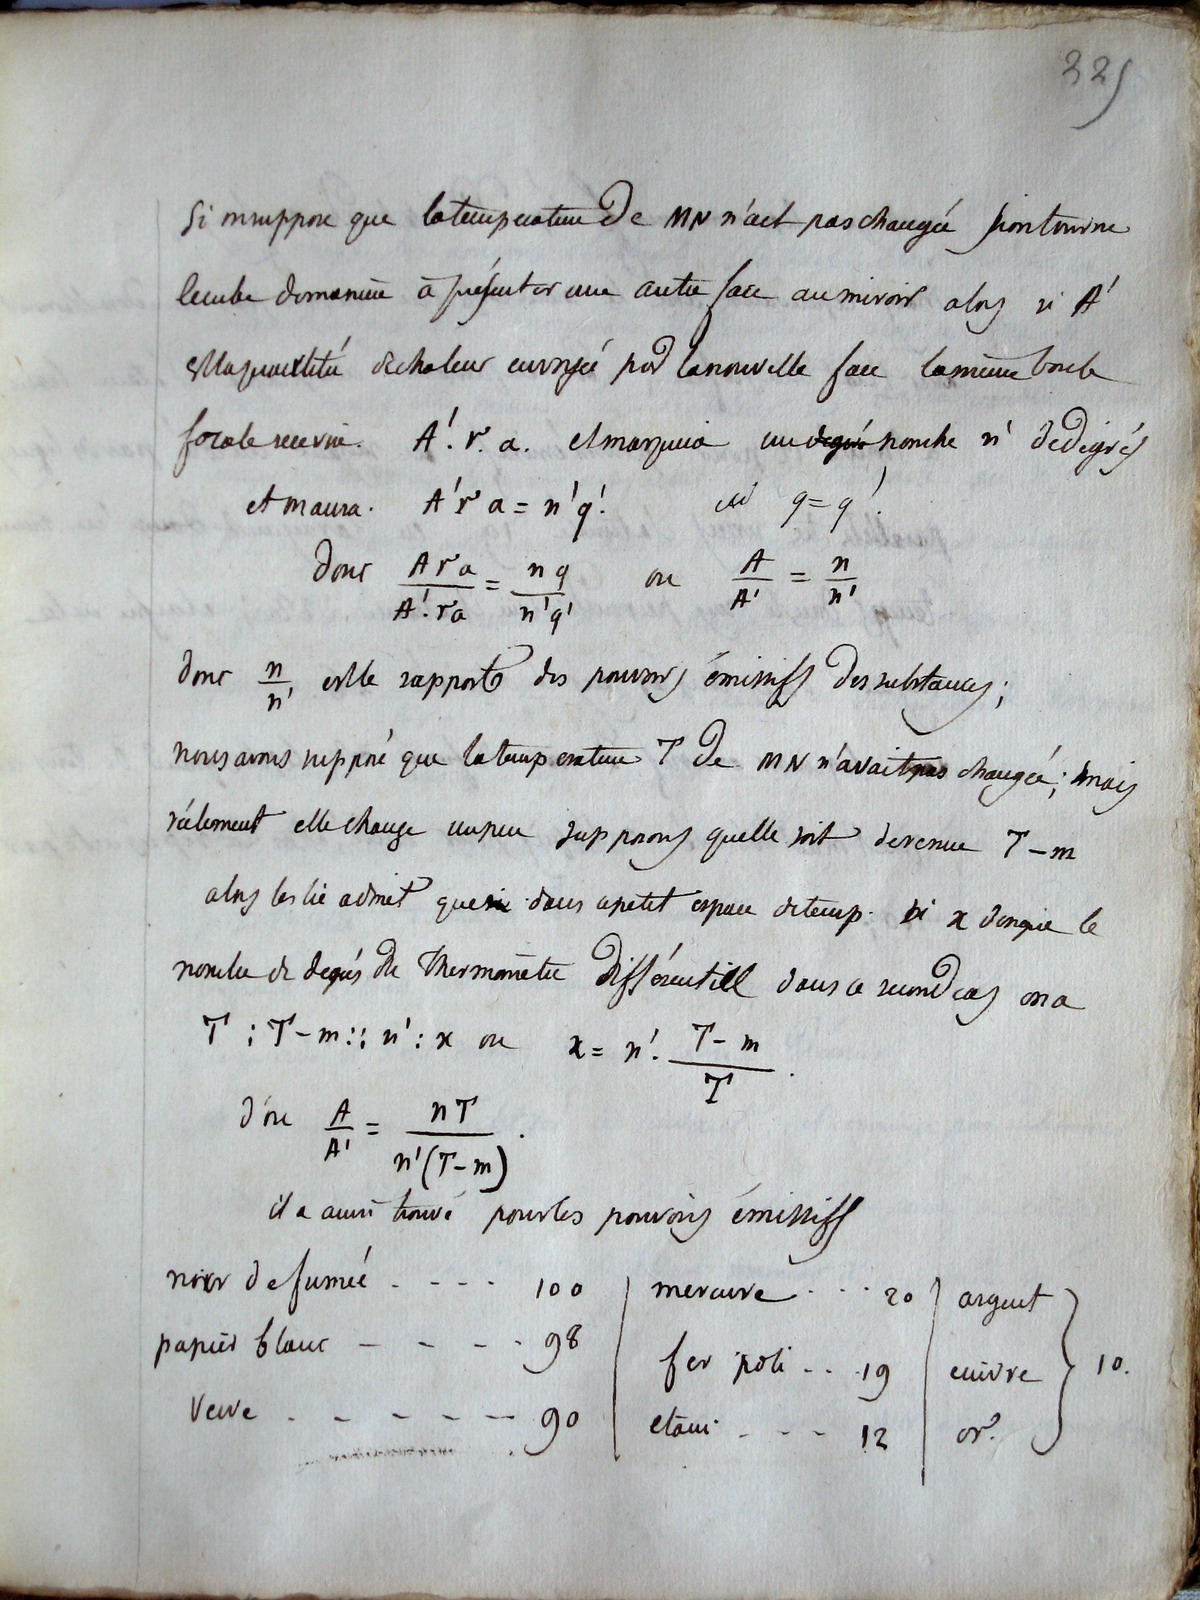 225
Si on suppose que la temperature de MN n'ait pas changée si on tourne
le cube de maniere à présenter une autre face au miroir alors si A'
est la quantité de chaleur envoyée par la nouvelle face la même boule
focale recevra. A'. r. a. et marquera un degrés nombre n' de degrés
et on aura. A' r a = n' q'. q = q'.
donc A r a / A'. r a = n q / n' q' ou A / A' = n / n'
donc n / n' est le rapport des pouvoirs émissifs des substances;
nous avons supposé que la temperature T de MN n'avait pas changée; mais
réelement elle change un peu supposons quelle soit devenue T - m
alors leslie admet que dans ce petit espace de temp. si x désigne le
nombre de degrés du Thermomètre différentiell dans ce second cas on a
T : T - m :: n' : x ou x = n'. T - m / T .
d'ou A / A' = n T / n' (T - m) .
il a aussi trouvé pour les pouvoirs émissifs
noir de fumée . - - - 100 | mercure . . . 20 | argent
papier blanc - - - - 98 | fer poli . . . 19 | cuivre } 10.
verre . - - - - - 90 | etain . - - - 12 | or.